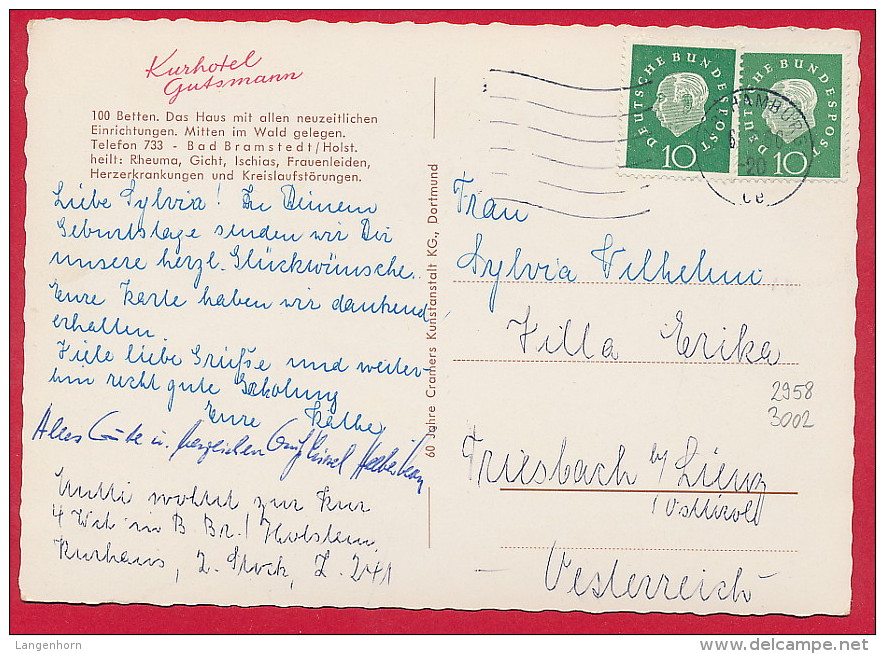 Kurhotel
Gutsmann
100 Betten. Das Haus mit allen neuzeitlichen
Einrichtungen. Mitten im Wald gelegen.
Telefon 733 - Bad Bramstedt/Holst.
heilt: Rheuma, Gicht, Ischias, Frauenleiden,
Herzerkrankungen und Kreislaufstörungen.
Liebe Sylvia! Zu Deinem
Geburtstage senden wir Dir
unsere herzl. Glückwünsche.
Eure Karte haben wir dankend
erhalten.
Viele liebe Grüße und weiter-
hin recht gute Erholung
Eure Käthe
Alles Gute u. herzlichen Gruß
Mutti wohnt zur Kur
4 Wch in B. Br./Holstein,
Kurhaus, 2. Stock, Z. 241
60 Jahre Cramers Kunstanstalt KG., Dortmund
DEUTSCHE BUNDESPOST
10
DEUTSCHE BUNDESPOST
10
HAMBURG
20
Frau
Sylvia Vilhelmo
Villa Erika
2958
3002
Friesbach b/ Lienz
(Osttirol)
Oesterreich
Langenhorn
www.delcampe.net